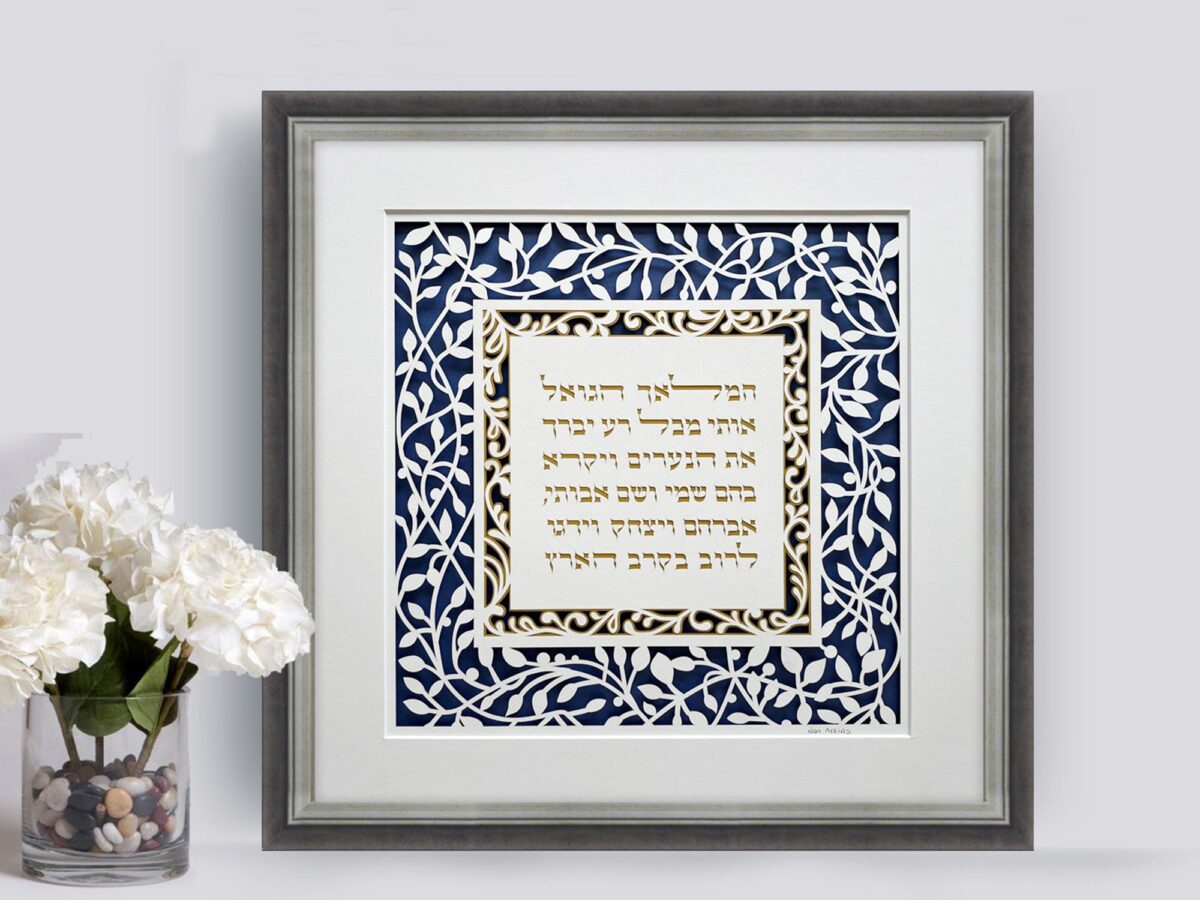 המלאך הגואל
אותי מכל רע יברך
את הנערים ויקרא
בהם שמי ושם אבותי,
אברהם ויצחק וידגו
לרוב בקרב הארץ